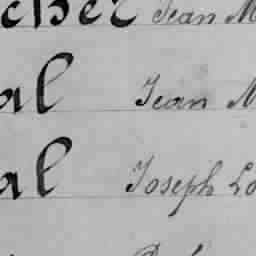 cher Jean M
al Jean M
al Joseph Lo